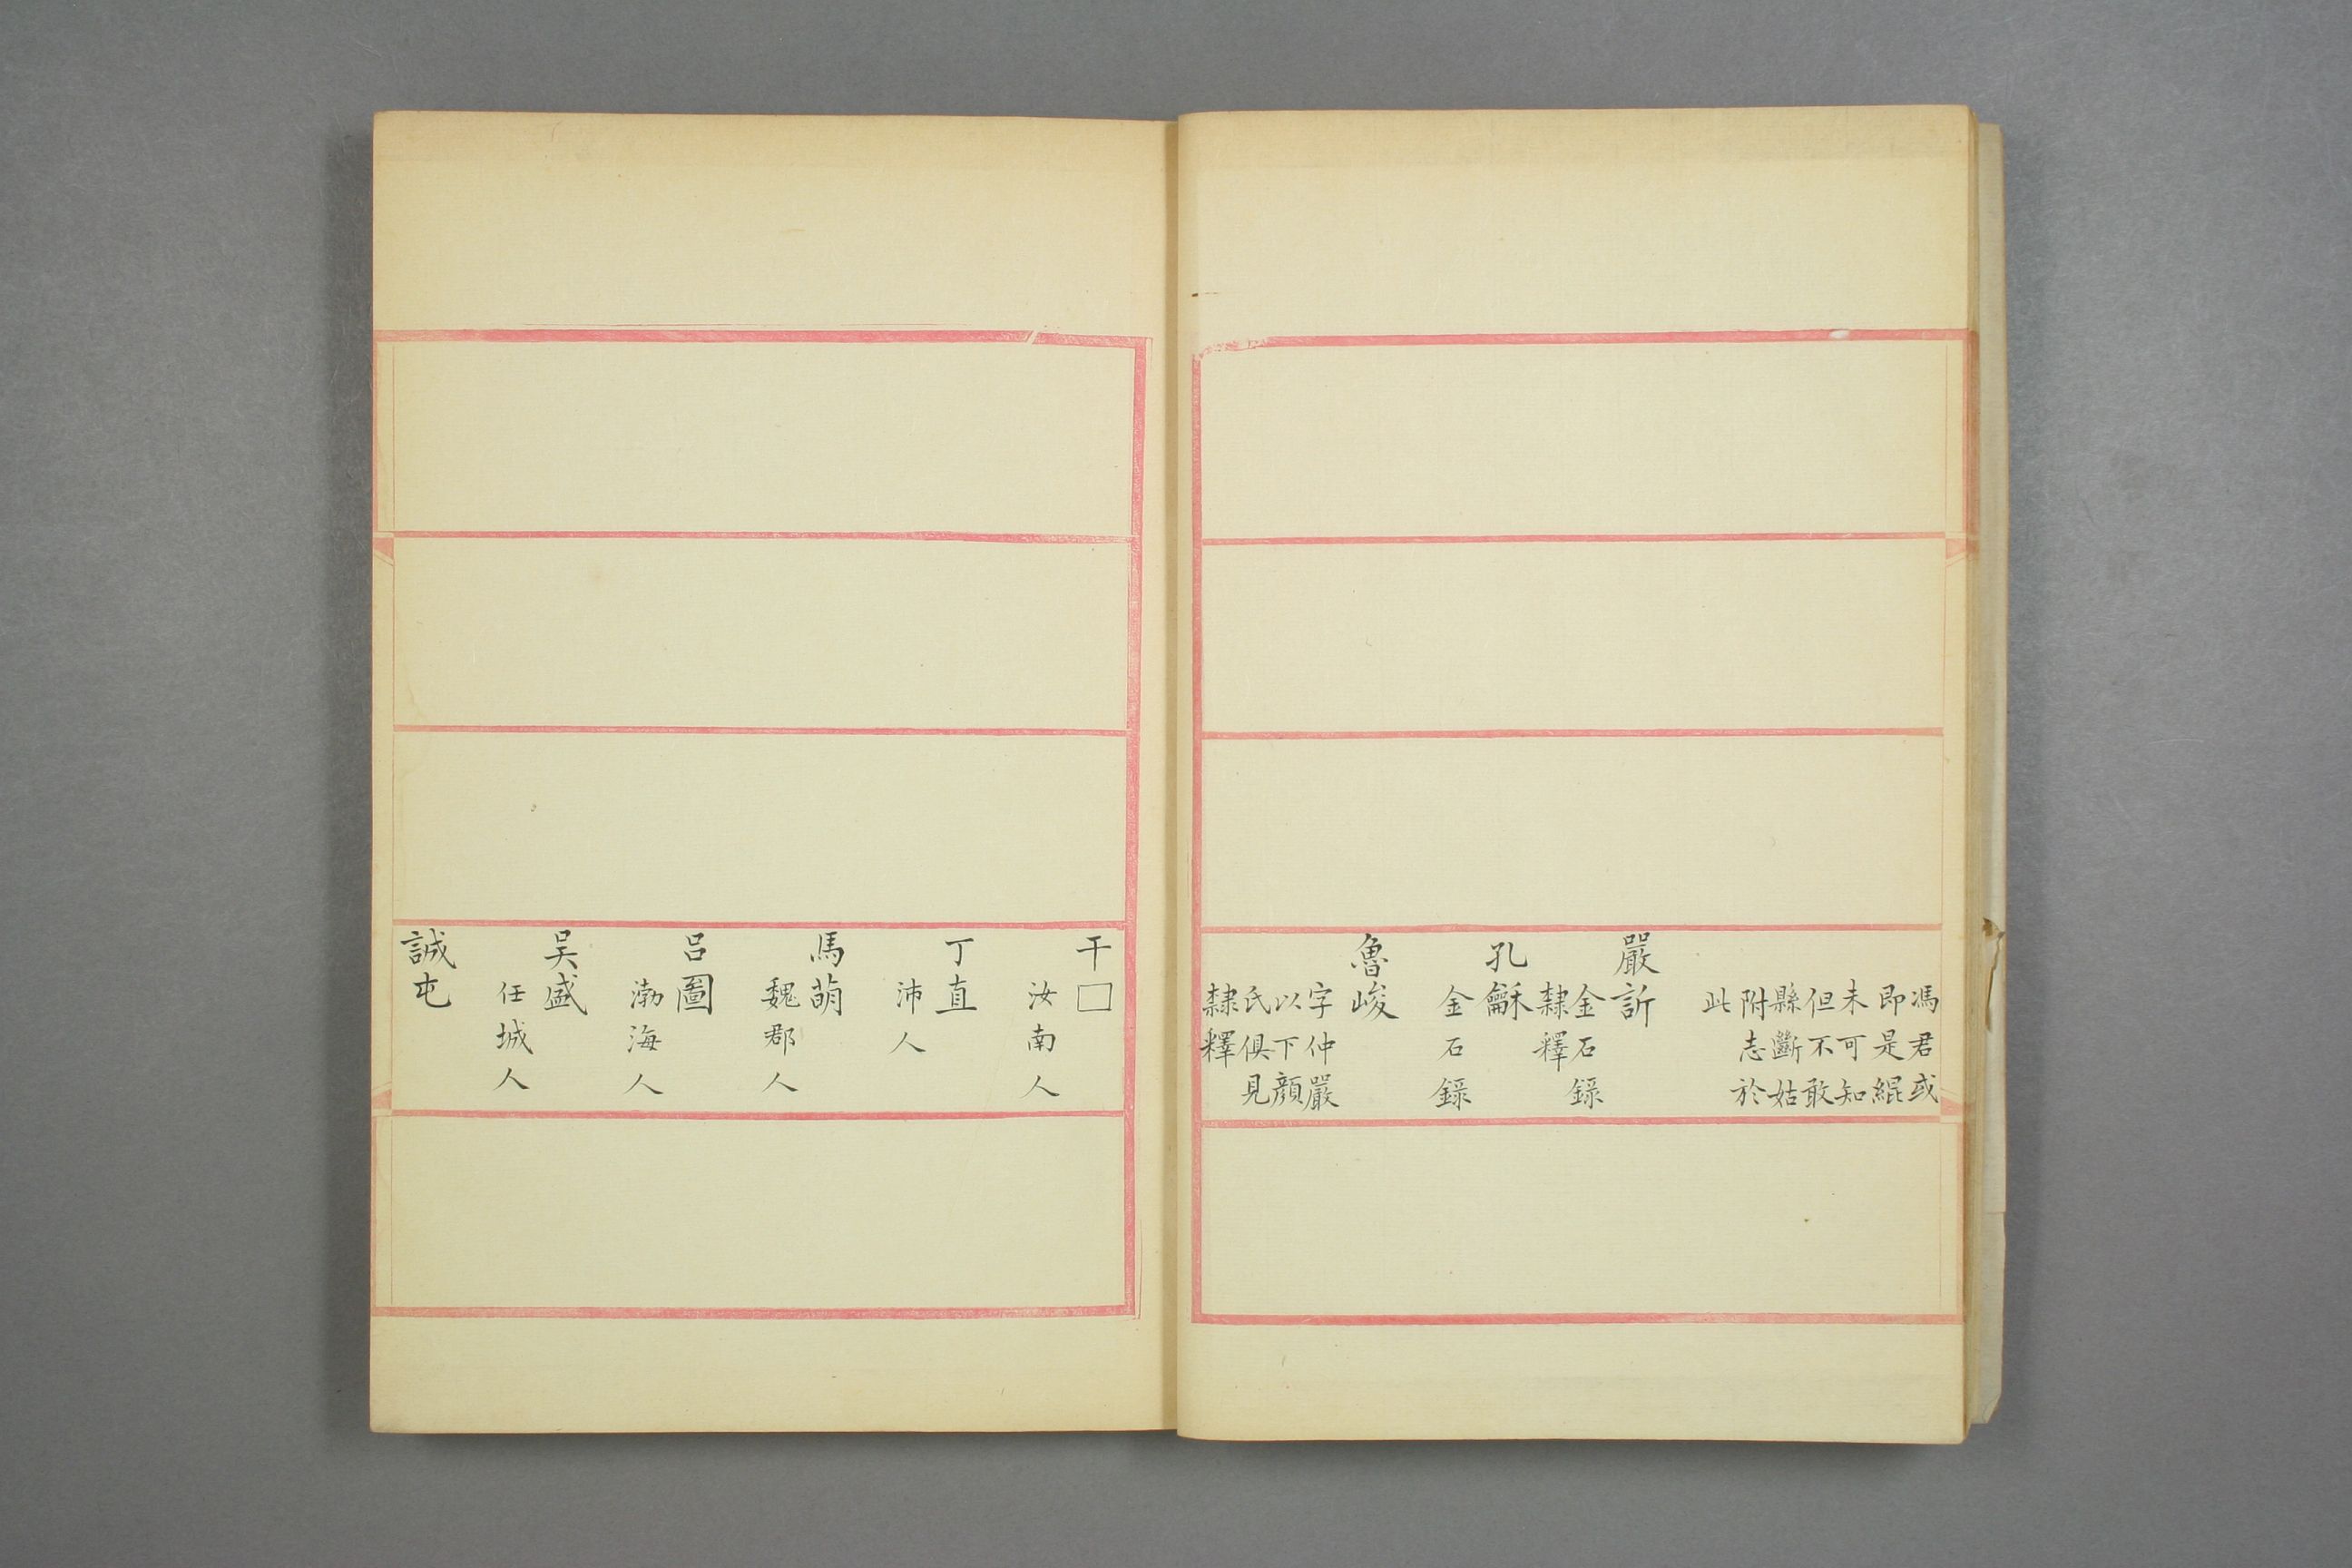 馮君或
即是緄
未可知
但不敢
縣斷姑
附志於
此
嚴訢
金石錄
隸釋
孔龢
金石錄
魯峻
字仲嚴
以下顏
氏俱見
隸釋
干□
汝南人
丁直
沛人
馬萌
魏郡人
呂圖
渤海人
吴盛
任城人
誠屯